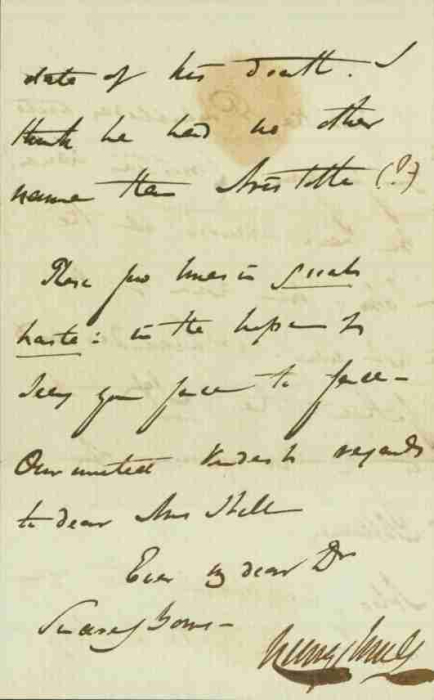 date of his death. I
think he had no other
name than Aristotle (?)
These few lines in great
haste: in the hope of
seeing you face to face –
Our united kindest regards
to dear Mrs
Ever my dear Dr
Sincerely Yours –